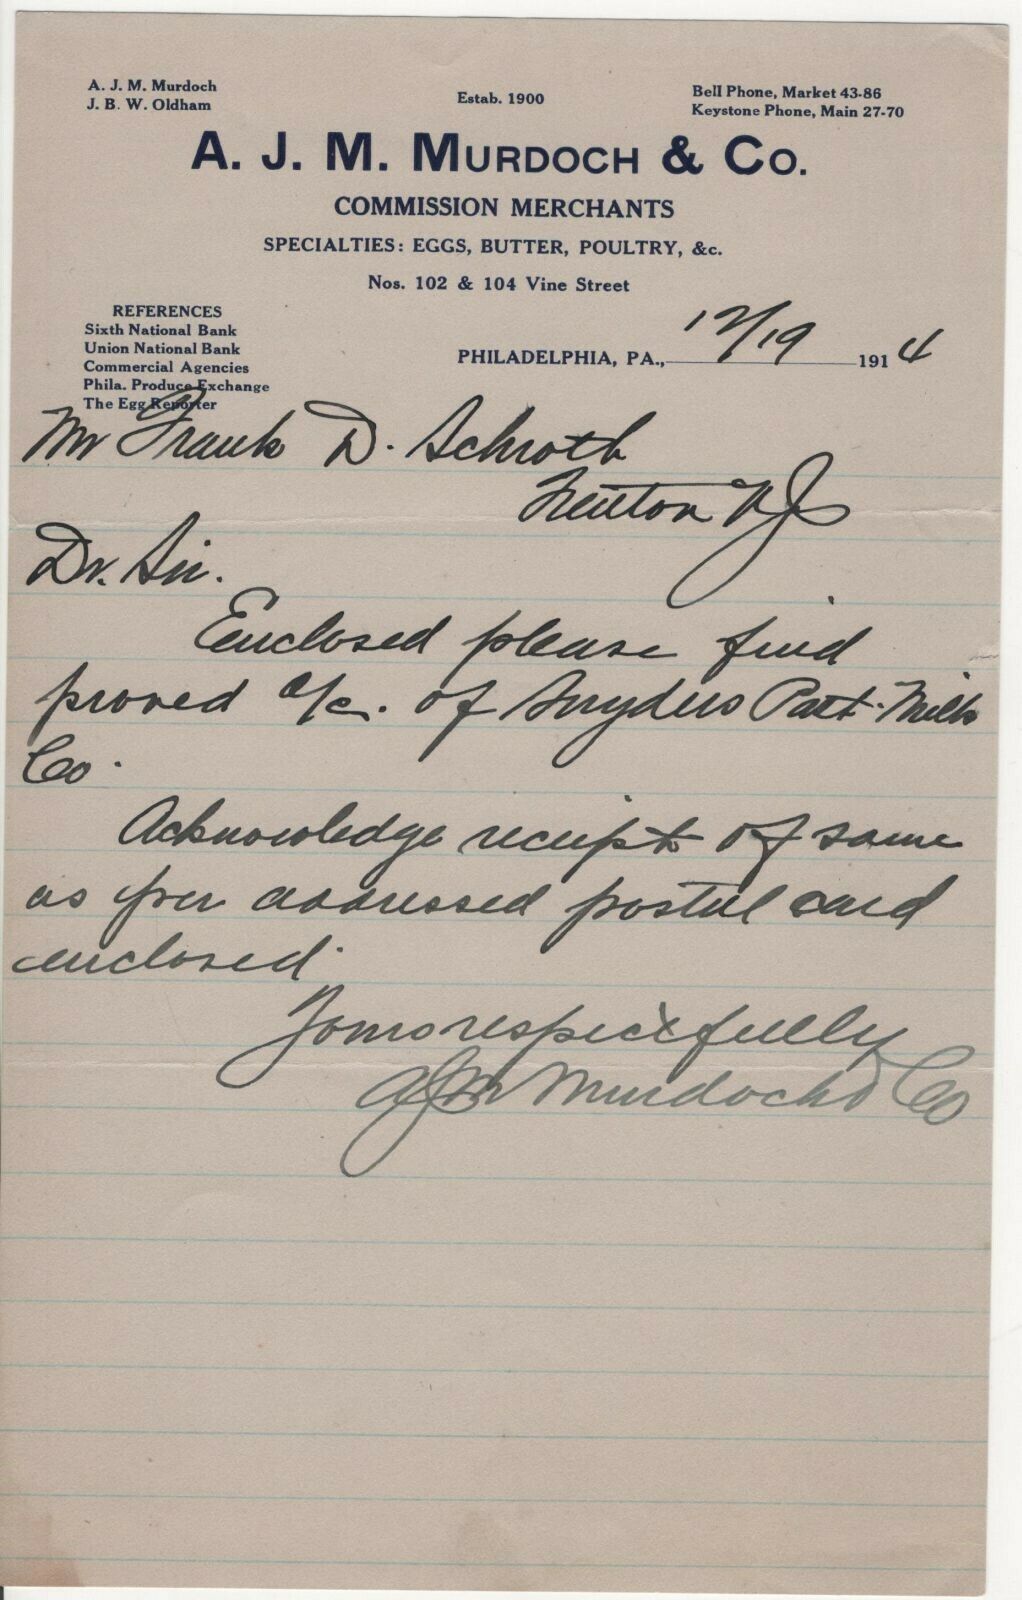 A. J. M. Murdoch
J. B. W. Oldham
Estab. 1900
Bell Phone, Market 43-86
Keystone Phone, Main 27-70
A. J. M. MURDOCH & CO.
COMMISSION MERCHANTS
SPECIALTIES: EGGS, BUTTER, POULTRY, &c.
Nos. 102 & 104 Vine Street
REFERENCES
Sixth National Bank
Union National Bank
Commercial Agencies
Phila. Produce Exchange
The Egg Reporter
PHILADELPHIA, PA., 12/19 1914
Mr Frank D. Schroth
Trenton NJ
Dr. Sir.
Enclosed please find
proved a/c. of Snyders Past. Milk
Co.
Acknowledge receipt of same
as per addressed postal card
enclosed.
Yours respectfully
AJM Murdoch & Co